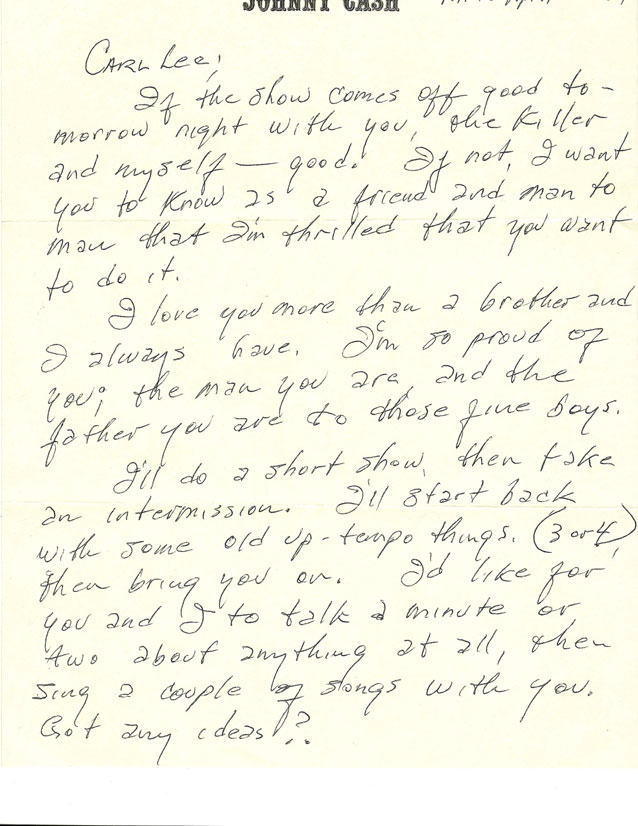 JOHNNY CASH
Carl Lee;
If the show comes off good to-
morrow night with you, the Killer
and myself — good. If not, I want
you to know as a friend and man to
man that I'm thrilled that you want
to do it.
I love you more than a brother and
I always have. I'm so proud of
you; the man you are, and the
father you are to those fine boys.
I'll do a short show, then take
an intermission. I'll start back
with some old up-tempo things. (3 or 4)
then bring you on. I'd like for
you and I to talk a minute or
two about anything at all, then
sing a couple of songs with you.
Got any ideas?